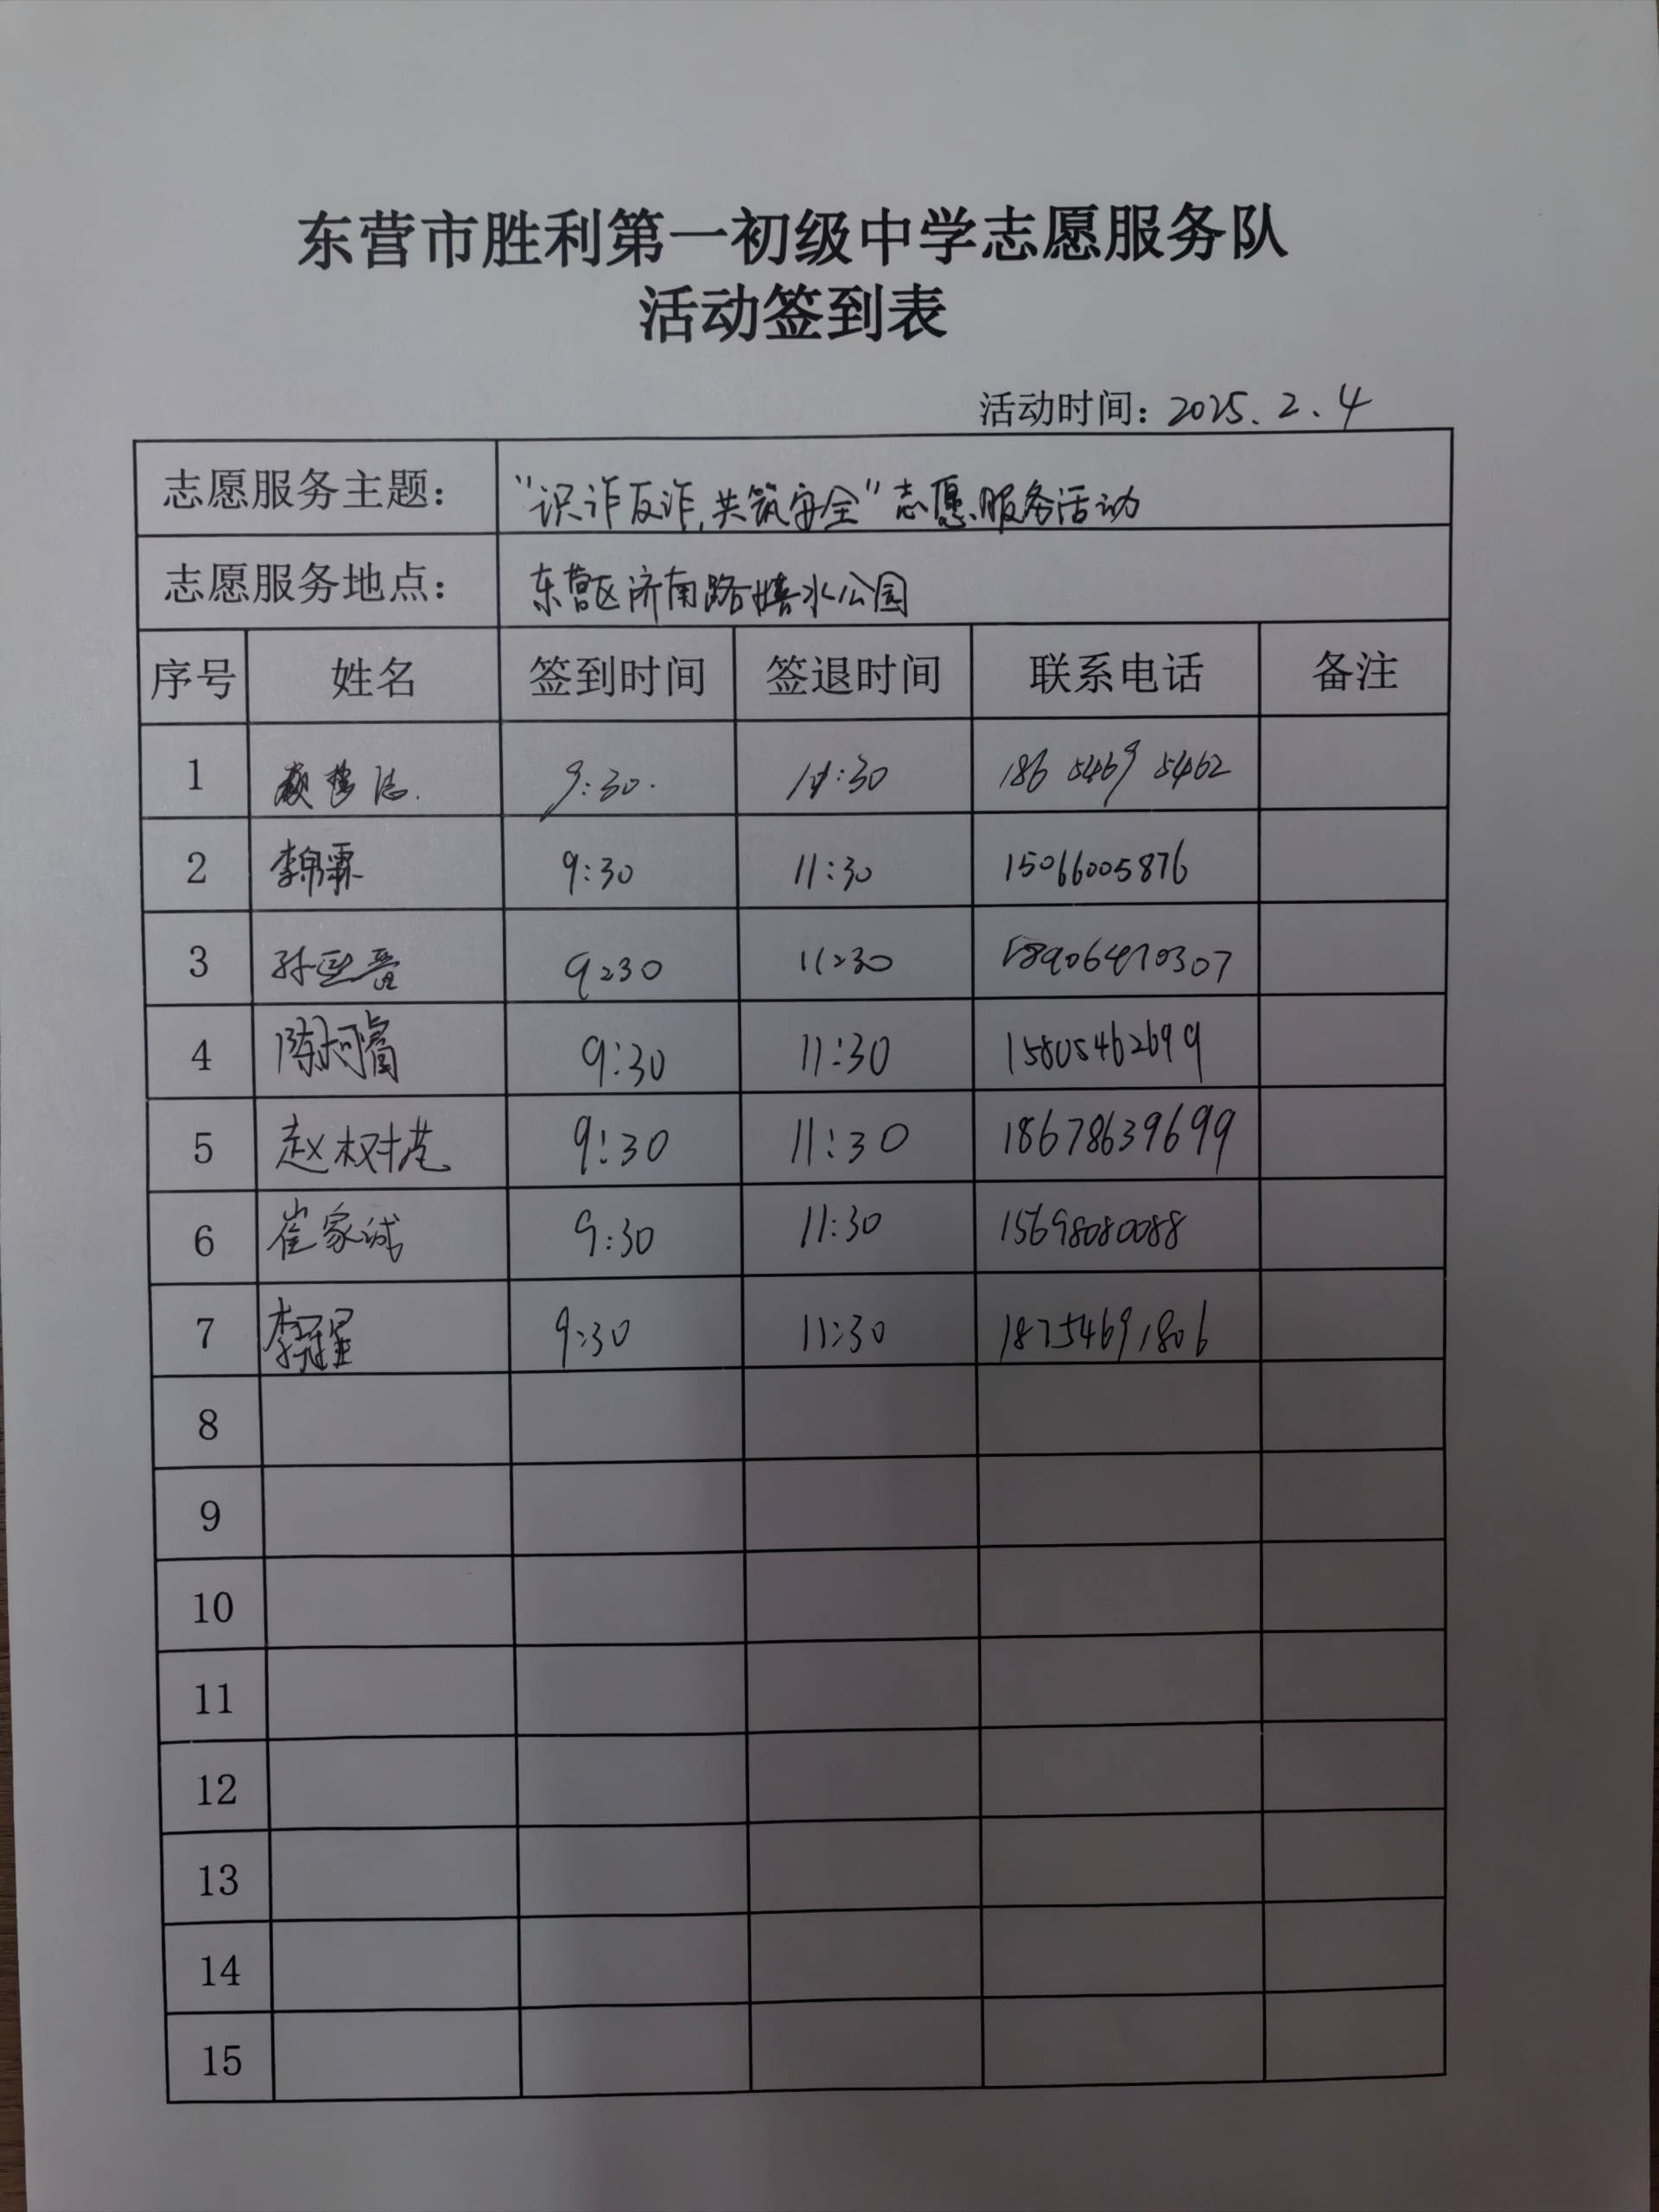 东营市胜利第一初级中学志愿服务队
活动签到表
活动时间：2025.2.4
志愿服务主题： “识诈反诈，共筑安全”志愿服务活动
志愿服务地点： 东营区济南路 水公园
序号 姓名 签到时间 签退时间 联系电话 备注
1 9:30. 11:30 186 5469 5462
2 李锦霖 9:30 11:30 15066005876
3 孙 9:30 11:30 18906470307
4 陈柯睿 9:30 11:30 15805462699
5 赵树 9:30 11:30 18678639699
6 崔家诚 9:30 11:30 15698080088
7 李冠星 9:30 11:30 18754691806
8
9
10
11
12
13
14
15